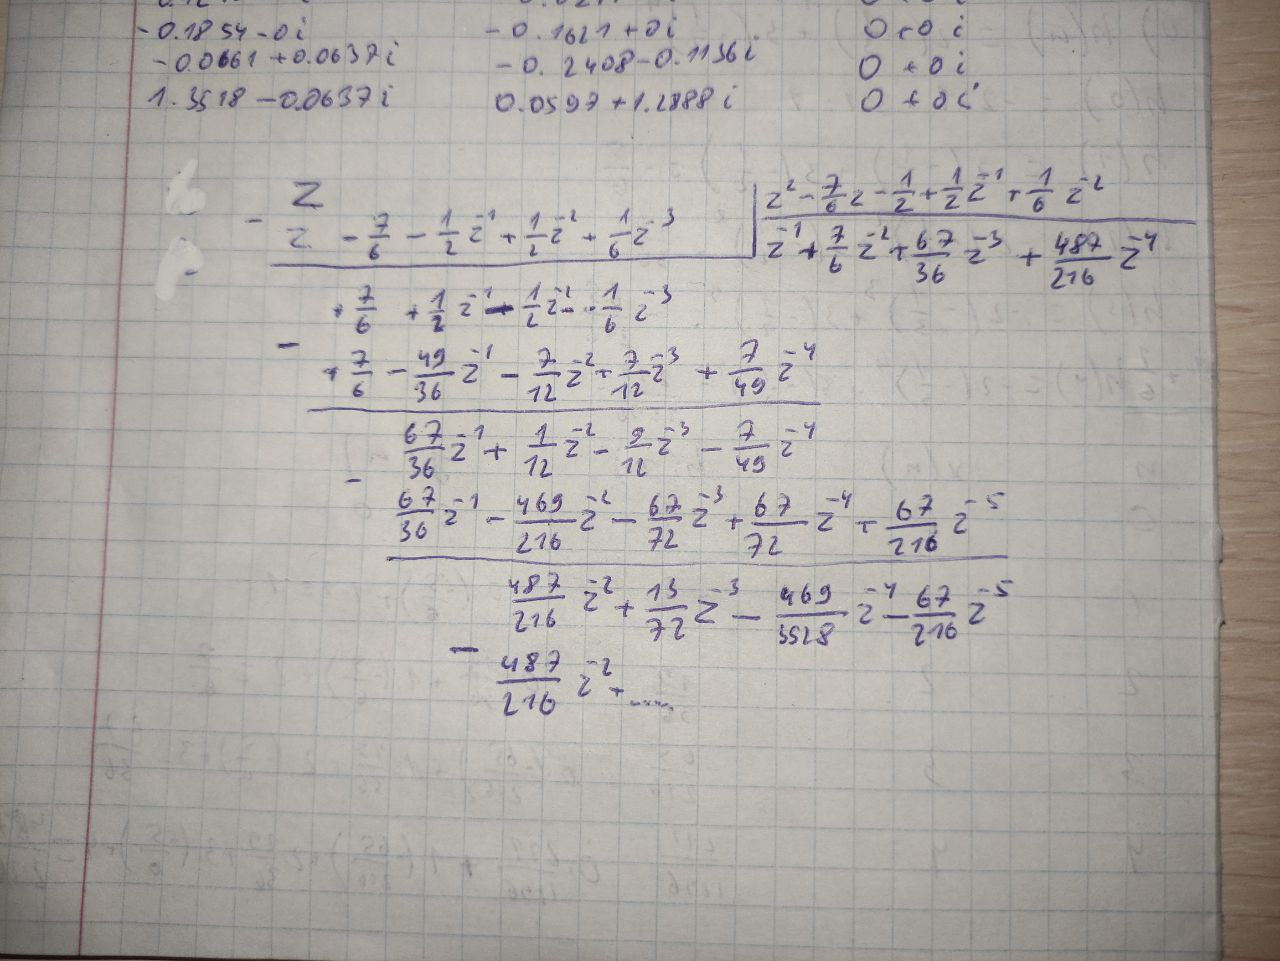 -0.1854-0i -0.1621+0i 0+0i
-0.0661+0.0637i -0.2408-0.1136i 0+0i
1.3518-0.0637i 0.0597+1.2888i 0+0i
z z² - 7/6 z - 1/2 + 1/2 z⁻¹ + 1/6 z⁻²
- z - 7/6 - 1/2 z⁻¹ + 1/2 z⁻² + 1/6 z⁻³ z⁻¹ + 7/6 z⁻² + 67/36 z⁻³ + 487/216 z⁻⁴
+ 7/6 + 1/2 z⁻¹ - 1/2 z⁻² - 1/6 z⁻³
- + 7/6 - 49/36 z⁻¹ - 7/12 z⁻² + 7/12 z⁻³ + 7/49 z⁻⁴
67/36 z⁻¹ + 1/12 z⁻² - 9/12 z⁻³ - 7/49 z⁻⁴
- 67/36 z⁻¹ - 469/216 z⁻² - 67/72 z⁻³ + 67/72 z⁻⁴ + 67/216 z⁻⁵
487/216 z⁻² + 13/72 z⁻³ - 469/3528 z⁻⁴ - 67/216 z⁻⁵
- 487/216 z⁻² + .....